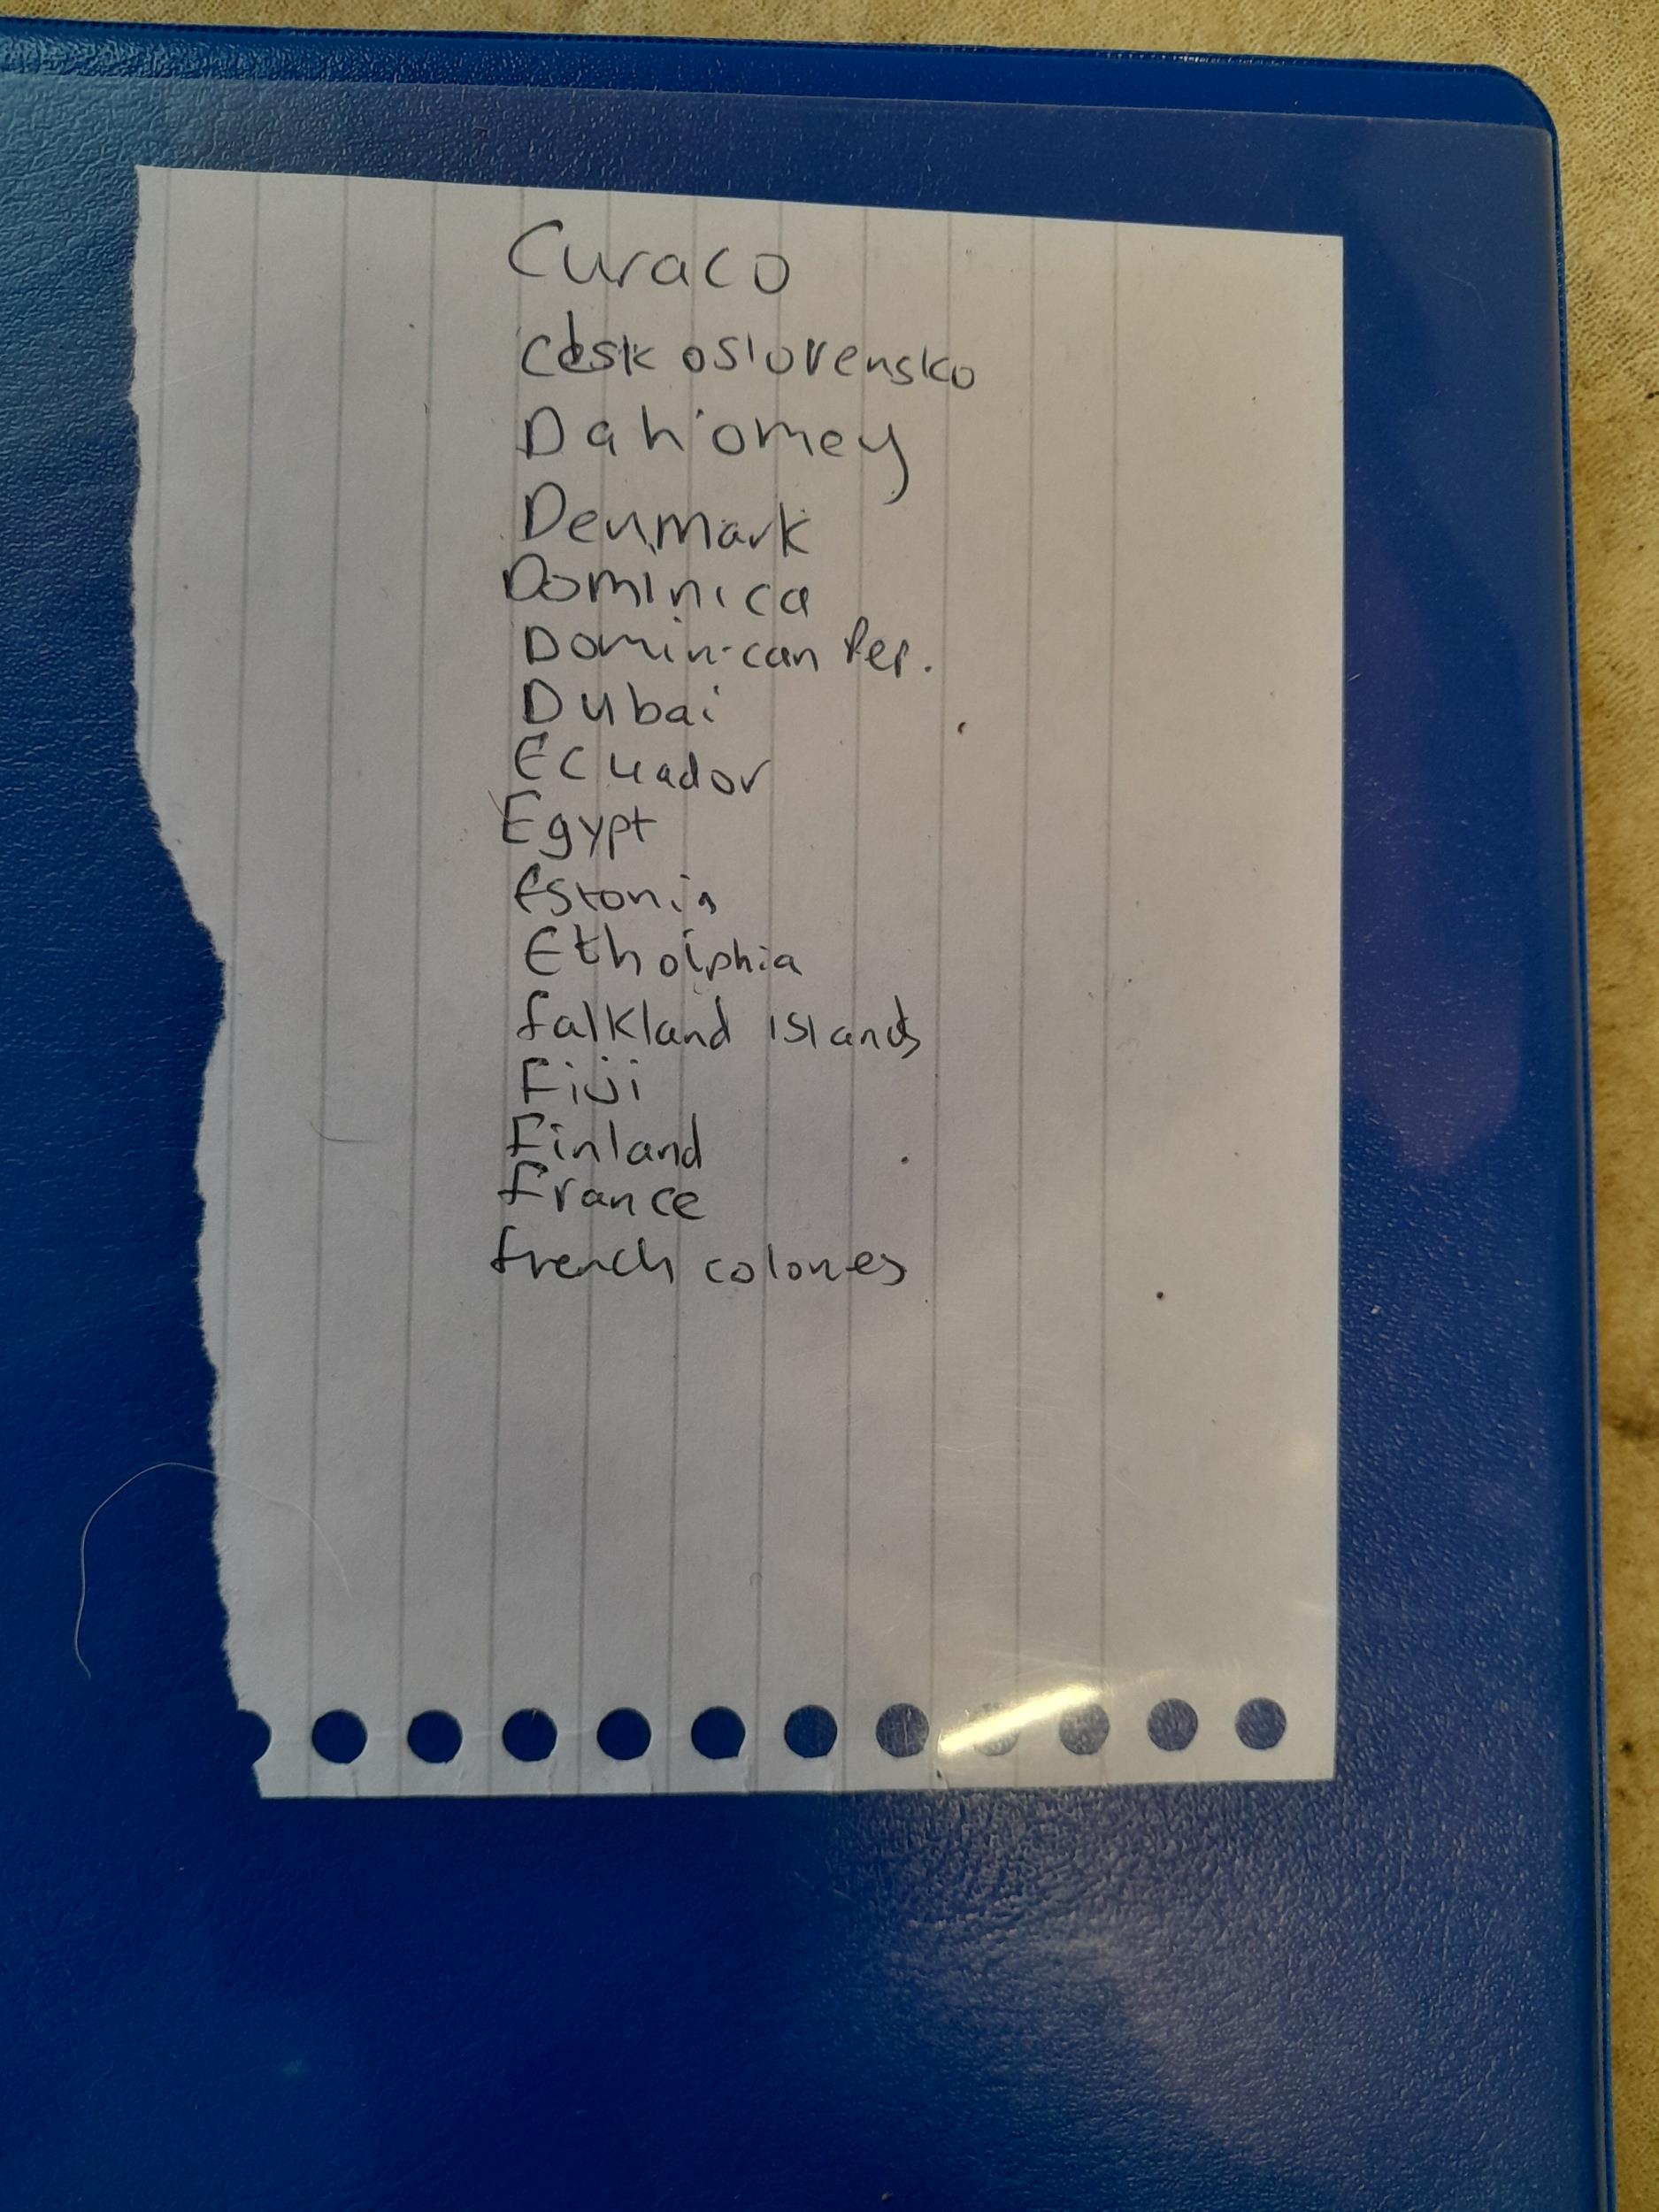 Curaco
Ceskoslovensko
Dahomey
Denmark
Dominica
Dominican Rep.
Dubai
Ecuador
Egypt
Estonia
Ethoiphia
falkland islands
Fiji
Finland
france
french colones